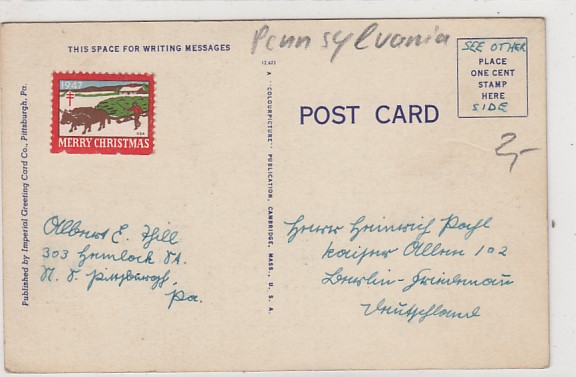 Pennsylvania
THIS SPACE FOR WRITING MESSAGES
1947
MERRY CHRISTMAS
USA
Published by Imperial Greeting Card Co., Pittsburgh, Pa.
Albert E. Hill
303 Hemlock St.
N. S. Pittsburgh,
Pa.
A "COLOURPICTURE" PUBLICATION, CAMBRIDGE, MASS., U. S. A.
POST CARD
SEE OTHER
PLACE
ONE CENT
STAMP
HERE
SIDE
2,-
Herrn Heinrich Pohl
Kaiser Allee 102
Berlin-Friedenau
Deutschland